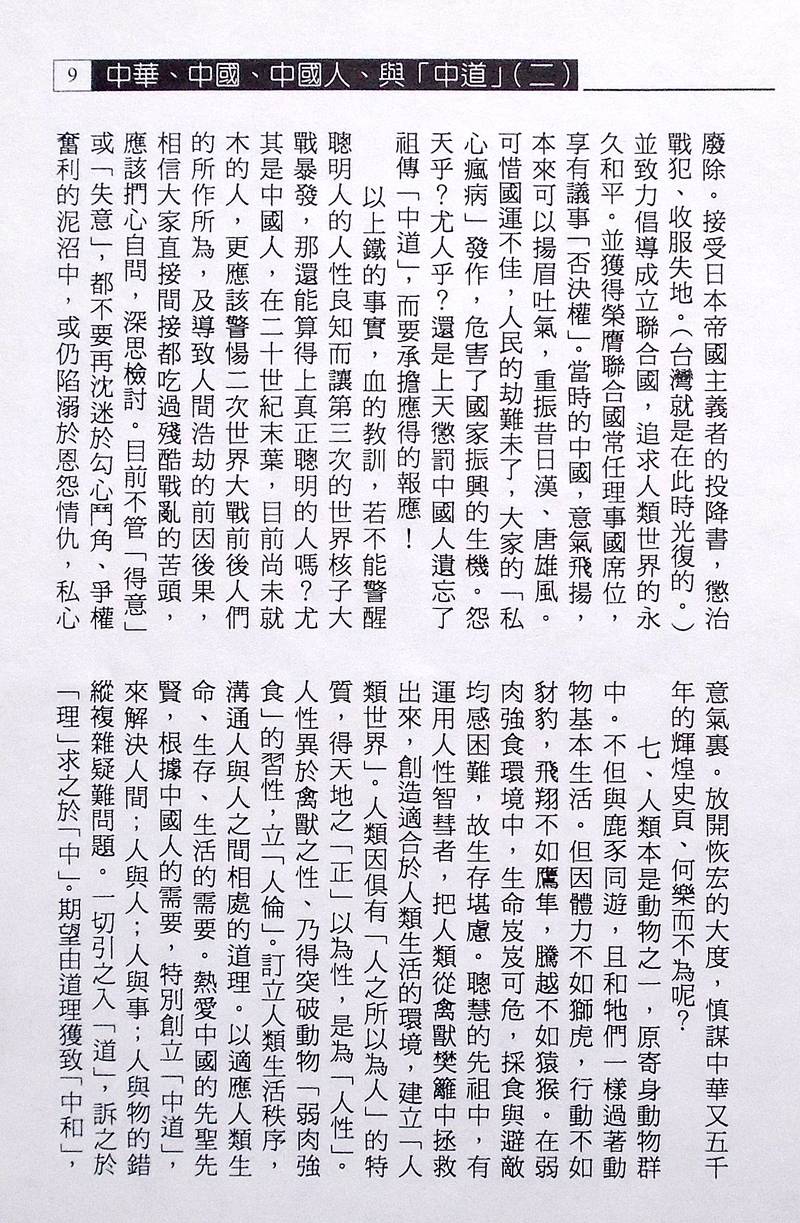 9 中華、中國、中國人、與「中道」(二)
廢除。接受日本帝國主義者的投降書，懲治
戰犯、收服失地。(台灣就是在此時光復的。)
並致力倡導成立聯合國，追求人類世界的永
久和平。並獲得榮膺聯合國常任理事國席位，
享有議事「否決權」。當時的中國，意氣飛揚，
本來可以揚眉吐氣，重振昔日漢、唐雄風。
可惜國運不佳，人民的劫難未了，大家的「私
心瘋病」發作，危害了國家振興的生機。怨
天乎？尤人乎？還是上天懲罰中國人遺忘了
祖傳「中道」，而要承擔應得的報應！
以上鐵的事實，血的教訓，若不能警醒
聰明人的人性良知而讓第三次的世界核子大
戰暴發，那還能算得上真正聰明的人嗎？尤
其是中國人，在二十世紀末葉，目前尚未就
木的人，更應該警惕二次世界大戰前後人們
的所作所為，及導致人間浩劫的前因後果，
相信大家直接間接都吃過殘酷戰亂的苦頭，
應該捫心自問，深思檢討。目前不管「得意」
或「失意」，都不要再沈迷於勾心鬥角、爭權
奮利的泥沼中，或仍陷溺於恩怨情仇，私心
意氣裏。放開恢宏的大度，慎謀中華又五千
年的輝煌史頁、何樂而不為呢？
七、人類本是動物之一，原寄身動物群
中。不但與鹿豕同遊，且和牠們一樣過著動
物基本生活。但因體力不如獅虎，行動不如
豺豹，飛翔不如鷹隼，騰越不如猿猴。在弱
肉強食環境中，生命岌岌可危，採食與避敵
均感困難，故生存堪慮。聰慧的先祖中，有
運用人性智彗者，把人類從禽獸樊籬中拯救
出來，創造適合於人類生活的環境，建立「人
類世界」。人類因俱有「人之所以為人」的特
質，得天地之「正」以為性，是為「人性」。
人性異於禽獸之性、乃得突破動物「弱肉強
食」的習性，立「人倫」。訂立人類生活秩序，
溝通人與人之間相處的道理。以適應人類生
命、生存、生活的需要。熱愛中國的先聖先
賢，根據中國人的需要，特別創立「中道」，
來解決人間；人與人；人與事；人與物的錯
縱複雜疑難問題。一切引之入「道」，訴之於
「理」求之於「中」。期望由道理獲致「中和」，